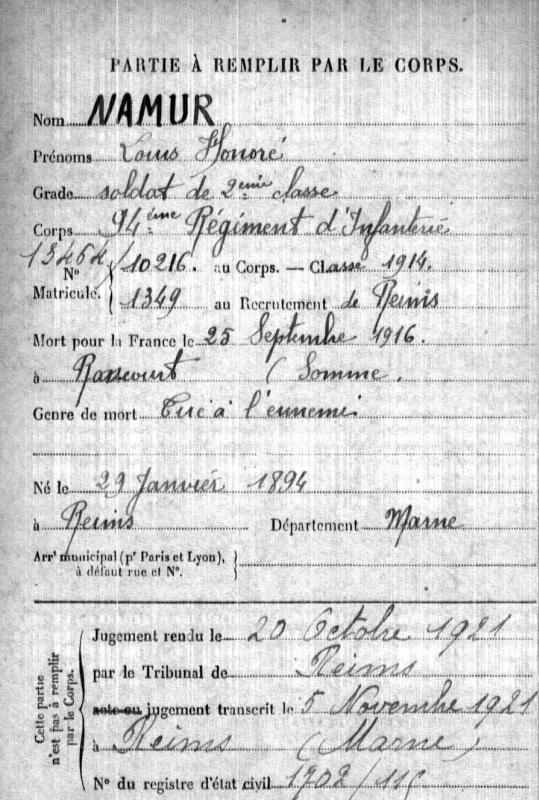 PARTIE À REMPLIR PAR LE CORPS.
Nom NAMUR
Prénoms Louis Honoré
Grade soldat de 2ème classe
Corps 94ème Régiment d'Infanterie
13464
N° Matricule. 10216. au Corps. — Classe 1914.
1349 au Recrutement de Reims
Mort pour la France le 25 Septembre 1916.
à Rancourt (Somme.
Genre de mort Tué à l'ennemi
Né le 29 Janvier 1894
à Reims Département Marne
Arrt municipal (pr Paris et Lyon),
à défaut rue et N°.
Cette partie
n'est pas à remplir
par le Corps.
Jugement rendu le 20 Octobre 1921
par le Tribunal de Reims
acte ou jugement transcrit le 5 Novembre 1921
à Reims (Marne)
N° du registre d'état civil 1702/